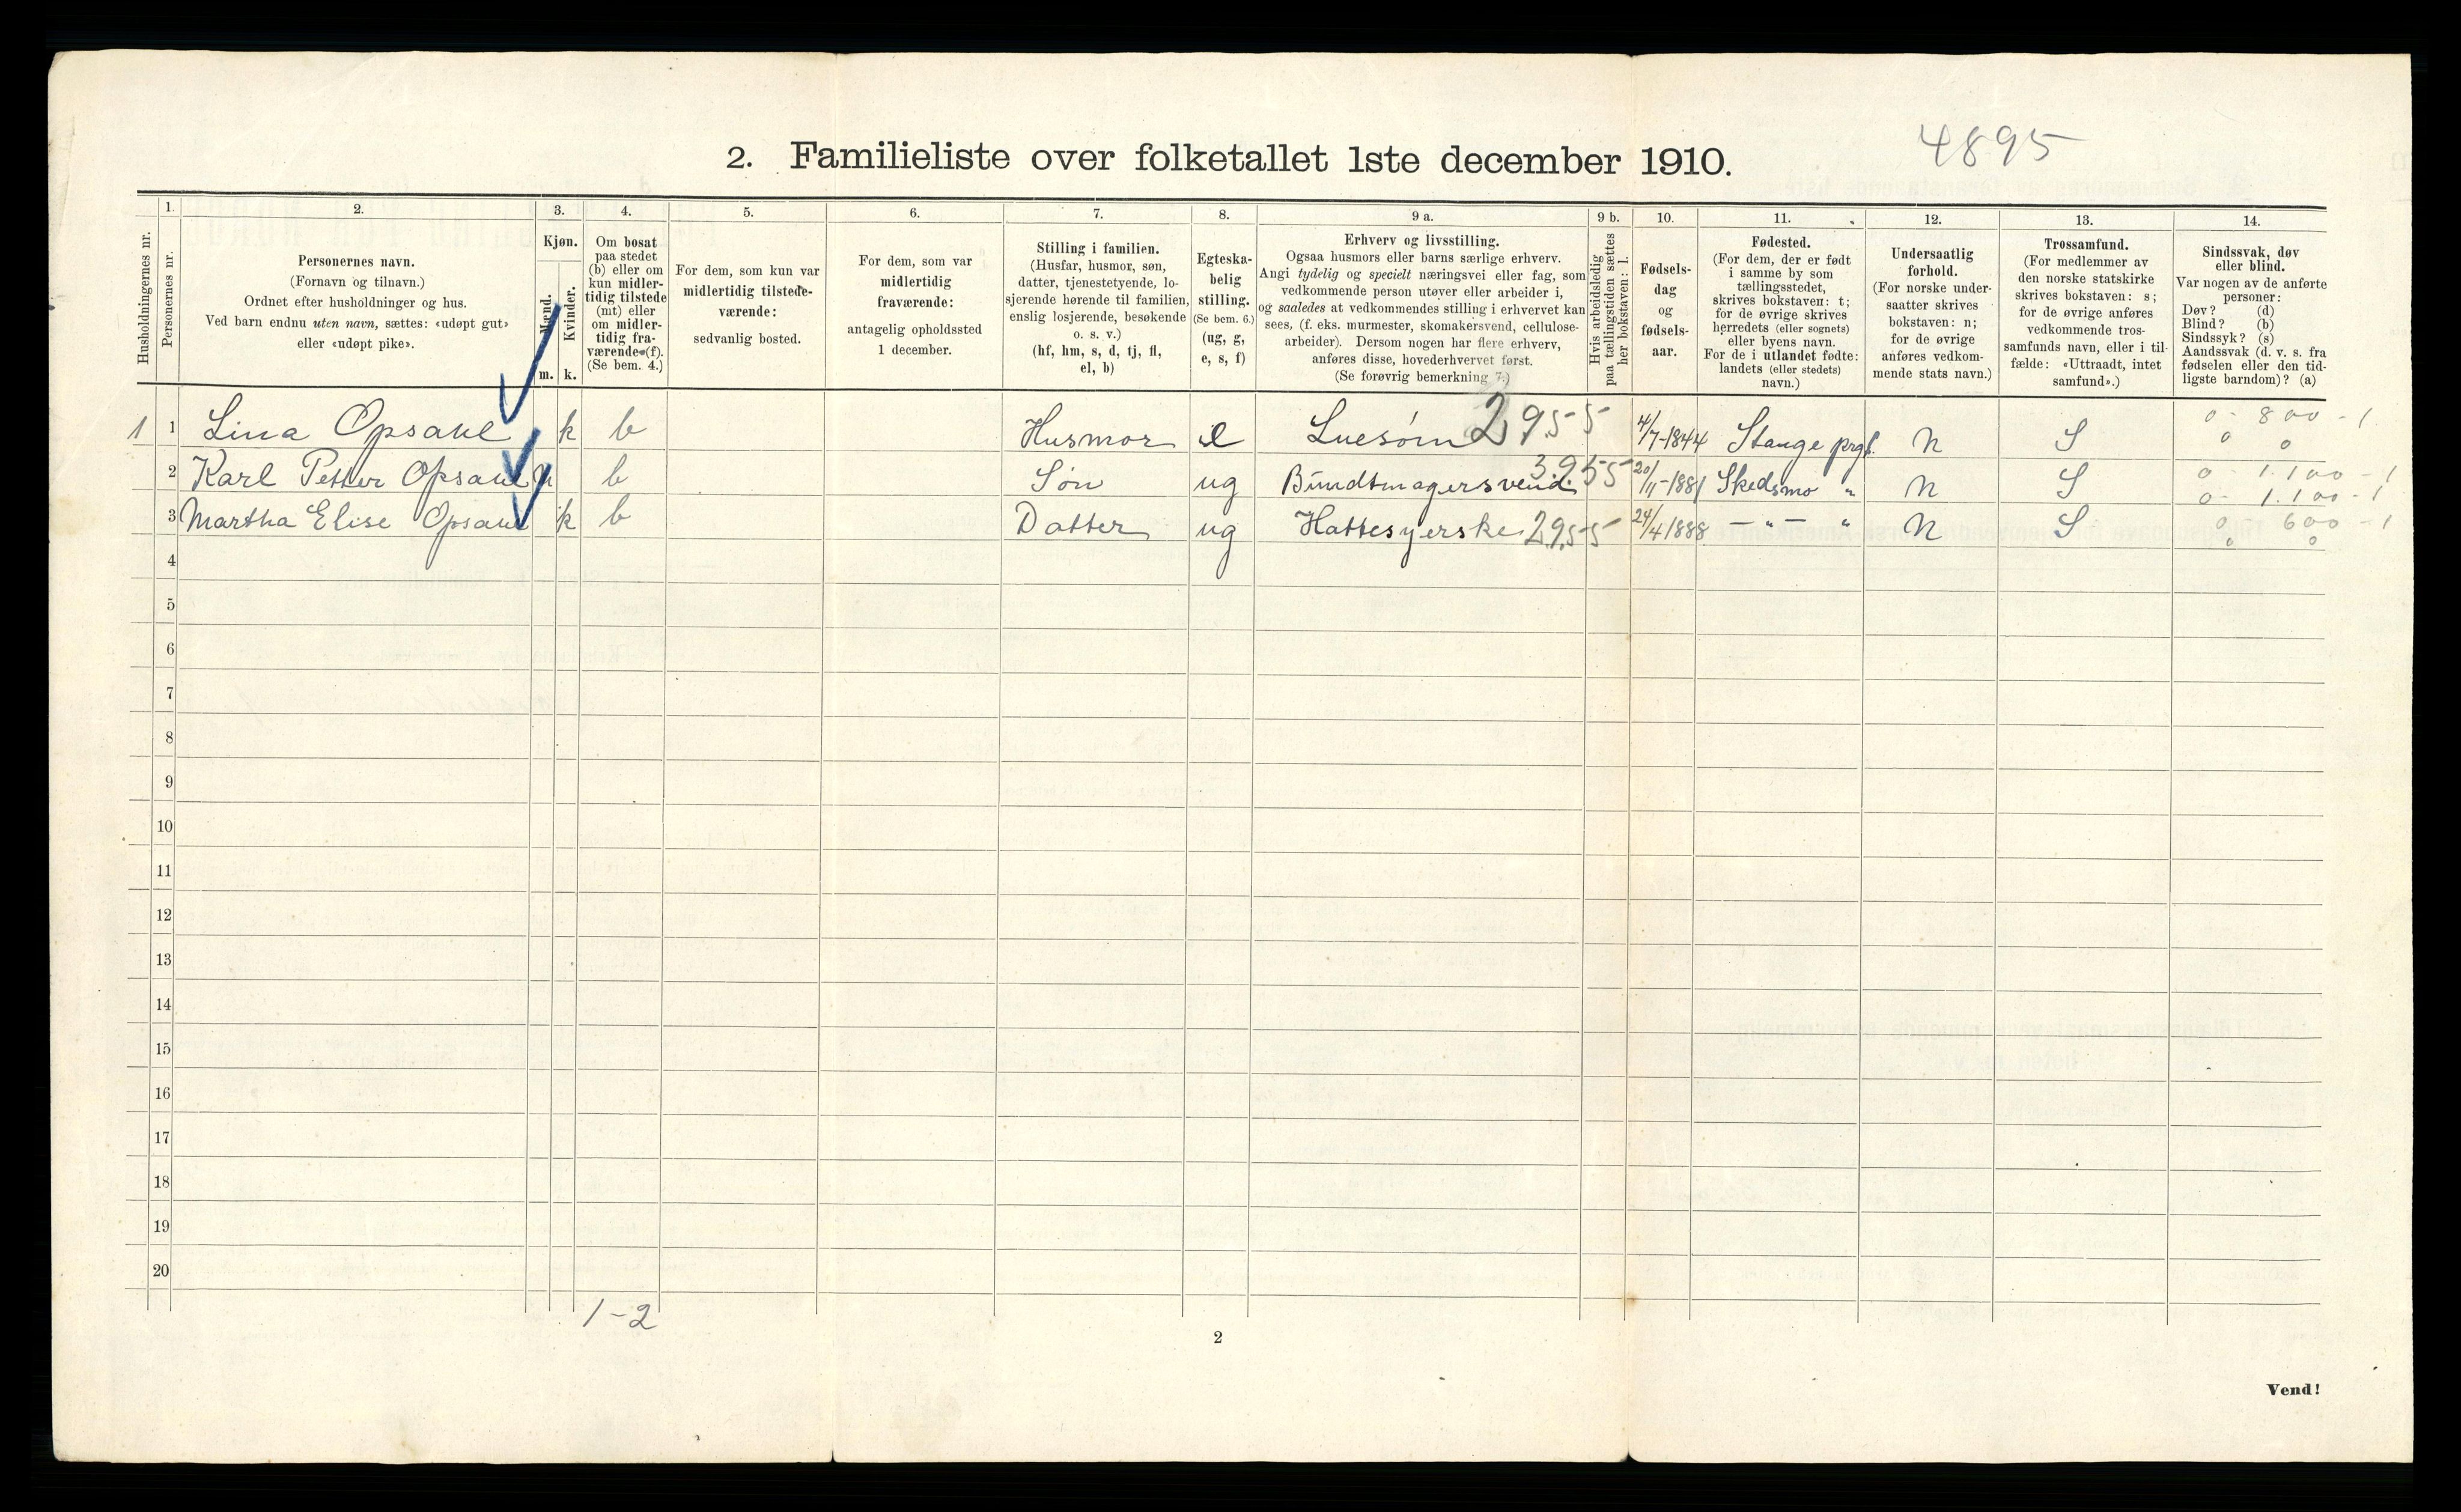 4895
2. Familieliste over folketallet 1ste december 1910.
1. 2. 3. 4. 5. 6. 7. 8. 9 a. 9 b. 10. 11. 12. 13. 14.
Husholdningernes nr.
Personernes nr.
Personernes navn.
(Fornavn og tilnavn.)
Ordnet efter husholdninger og hus.
Ved barn endnu uten navn, sættes: «udøpt gut»
eller «udøpt pike».
Kjøn.
Mænd.
Kvinder.
m. k.
Om bosat
paa stedet
(b) eller om
kun midler-
tidig tilstede
(mt) eller
om midler-
tidig fra-
værende (f).
(Se bem. 4.)
For dem, som kun var
midlertidig tilstede-
værende:
sedvanlig bosted.
For dem, som var
midlertidig
fraværende:
antagelig opholdssted
1 december.
Stilling i familien.
(Husfar, husmor, søn,
datter, tjenestetyende, lo-
sjerende hørende til familien,
enslig losjerende, besøkende
o. s. v.)
(hf, hm, s, d, tj, fl,
el, b)
Egteska-
belig
stilling.
(Se bem. 6.)
(ug, g,
e, s, f)
Erhverv og livsstilling.
Ogsaa husmors eller barns særlige erhverv.
Angi tydelig og specielt næringsvei eller fag, som
vedkommende person utøver eller arbeider i,
og saaledes at vedkommendes stilling i erhvervet kan
sees, (f. eks. murmester, skomakersvend, cellulose-
arbeider). Dersom nogen har flere erhverv,
anføres disse, hovederhvervet først.
(Se forøvrig bemerkning 7.)
Hvis arbeidsledig
paa tællingstiden sættes
her bokstaven: l.
Fødsels-
dag
og
fødsels-
aar.
Fødested.
(For dem, der er født
i samme by som
tællingsstedet,
skrives bokstaven: t;
for de øvrige skrives
herredets (eller sognets)
eller byens navn.
For de i utlandet fødte:
landets (eller stedets)
navn.)
Undersaatlig
forhold.
(For norske under-
saatter skrives
bokstaven: n;
for de øvrige
anføres vedkom-
mende stats navn.)
Trossamfund.
(For medlemmer av
den norske statskirke
skrives bokstaven: s;
for de øvrige anføres
vedkommende tros-
samfunds navn, eller i til-
fælde: «Uttraadt, intet
samfund».)
Sindssvak, døv
eller blind.
Var nogen av de anførte
personer:
Døv? (d)
Blind? (b)
Sindssyk? (s)
Aandssvak (d. v. s. fra
fødselen eller den tid-
ligste barndom)? (a)
1 1 Lina Opsahl k b Husmor e 2955 4/7-1844 Stange prgl. n S 0 - 800 - 1
0 0
2 Karl Petter Opsahl b Søn ug Bundtmagersvend 3.9.55 20/11-1881 Skedsmo " n S 0 - 1.100 - 1
0 - 1.100 - 1
3 Martha Elise Opsahl k b Datter ug Hattesyerske 2955 24/4 1888 — " — " n S 0 600 - 1
0 0
4
5
6
7
8
9
10
11
12
13
14
15
16
17
18
19
20
1-2
2
Vend!